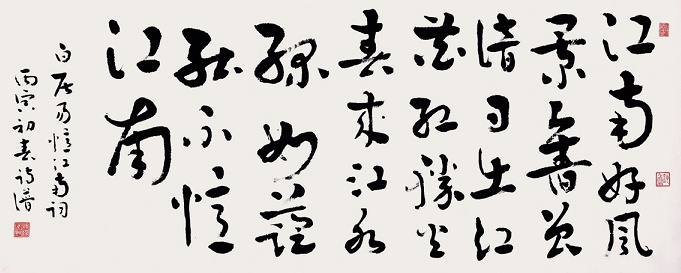 江南好風
景舊曾
諳日出江
花紅勝火
春來江水
綠如藍
能不憶
江南
白居易憶江南詞
丙寅初春